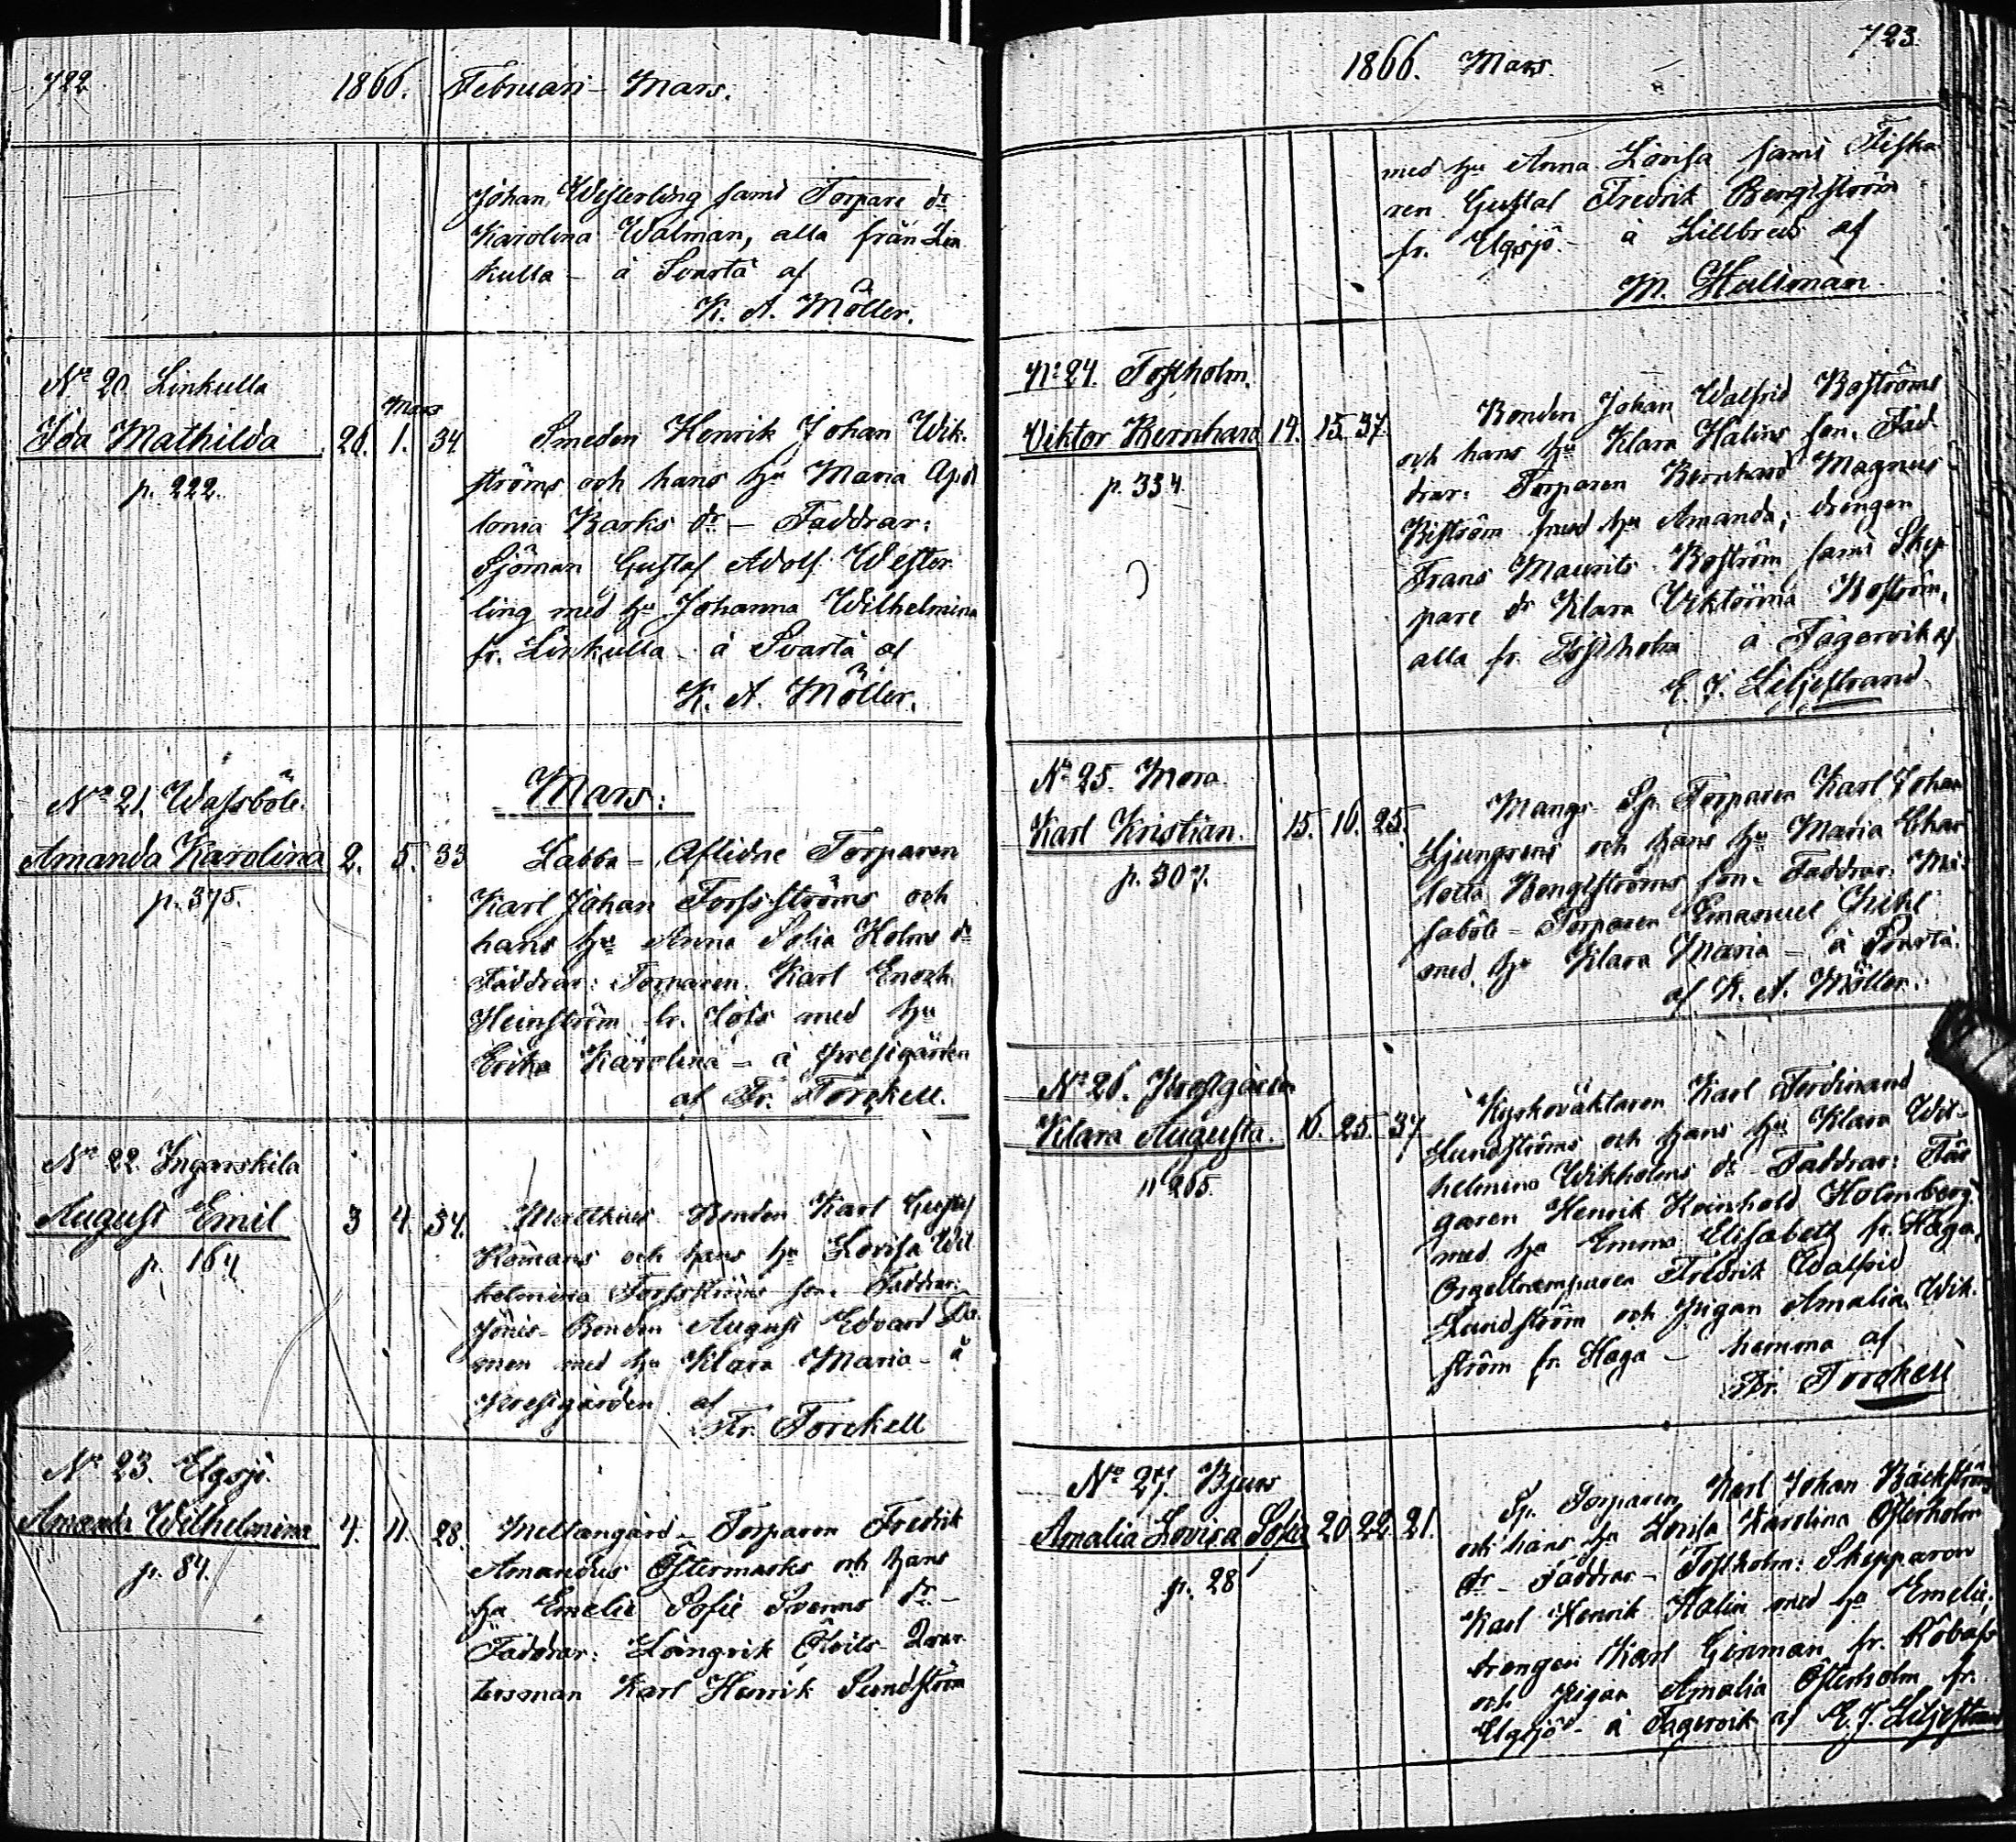 722
1866. Februari - Mars.
Johan Westerling samt Torpare dr
Karolina Walman, alla från Lin
kulla - å Svartå af
K. A. Möller.
No 20 Linkulla
Mars
Ida Mathilda 26. 1. 34
p. 222.
Smeden Henrik Johan Wik-
ströms och hans hu Maria Apol
lonia Barks dr - Faddrar:
Sjöman Gustaf Adolf Wester
ling med hu Johanna Wilhelmina
fr. Linkulla - å Svartå af
K. A. Möller.
Mars:
No 21. Wassböle.
Amanda Karolina 2. 5. 33
p. 375.
Labba - Aflidne Torparen
Karl Johan Forsströms och
hans hu Anna Sofia Holms dr
Faddrar: Torparen Karl Enoch
Heinström fr. med hu
Erika Karolina - å Prestgården
af Fr. Torckell.
No 22. Ingarskila
August Emil 3 4. 34.
p. 164
Matthius Bonden Karl Gustaf
Romans och hans hu Lovisa Wil
helmina Forsströms son. Faddrar:
Jönis - Bonden August Edvard
men med hu Klara Maria - å
Prestgården af
Fr. Torckell
No 23. Elgsjö.
Amanda Wilhelmina 4. 11. 28.
p. 84.
Mellangård - Torparen Fredrik
Amandus Östermarks och hans
hu Emelie Sofie Svenns dr -
Faddrar: Långvik Qvar
tersman Karl Henrik Sundström
723
1866. Mars.
med hu Anna Lovisa samt Fiska
ren Gustaf Fredrik Bengtström
fr. Elgsjö. - å Lillbreds af
M. Hultman.
No 24. Tostholm.
Viktor Bernhard 14. 15. 37.
p. 334
Bonden Johan Walfrid Boströms
och hans hu Klara Halins son. Fad
drar: Torparen Bernhard Magnus
Biström med hu Amanda; drengen
Frans Maurits Boström samt Skep
pare dr Klara Viktorina Boström,
alla fr. Tostholm å Fagervik af
E. J. Liljestrand
No 25. Mora
Karl Kristian. 15. 16. 25.
p. 307.
Mangs Sp. Torparen Karl Johan
Ljungrens och hans hu Maria Char
lotta Bengtströms son. Faddrar:
saböle - Torparen Emanuel
med hu Klara Maria - å Svartå.
af K. A. Möller.
No 26. Prestgården
Klara Augusta. 16. 25. 37
p 265.
Kyrkoväktaren Karl Ferdinand
Lundströms och hans hu Klara Wil-
helmina Wikholms dr - Faddrar: Fär
garen Henrik Reinhold Holmberg
med hu Emma Elisabeth fr. Haga,
Orgeltramparen Fredrik Walfrid
Lundström och Pigan Amalia Wik-
ström fr. Haga - hemma af
Fr. Torckell
No 27. Bjurs
Amalia Lovisa Sofia 20. 22. 21.
p. 28
Sp. Torparen Karl Johan Bäckströms
och hans hu Lovisa Karolina Österholm
dr - Faddrar - Tostholm: Skepparen
Karl Henrik Halin med hu Emelie;
drengen Karl Ginman fr. Röbass
och Pigan Amalia Österholm fr.
Elgsjö - å Fagervik af E. J. Liljestrand